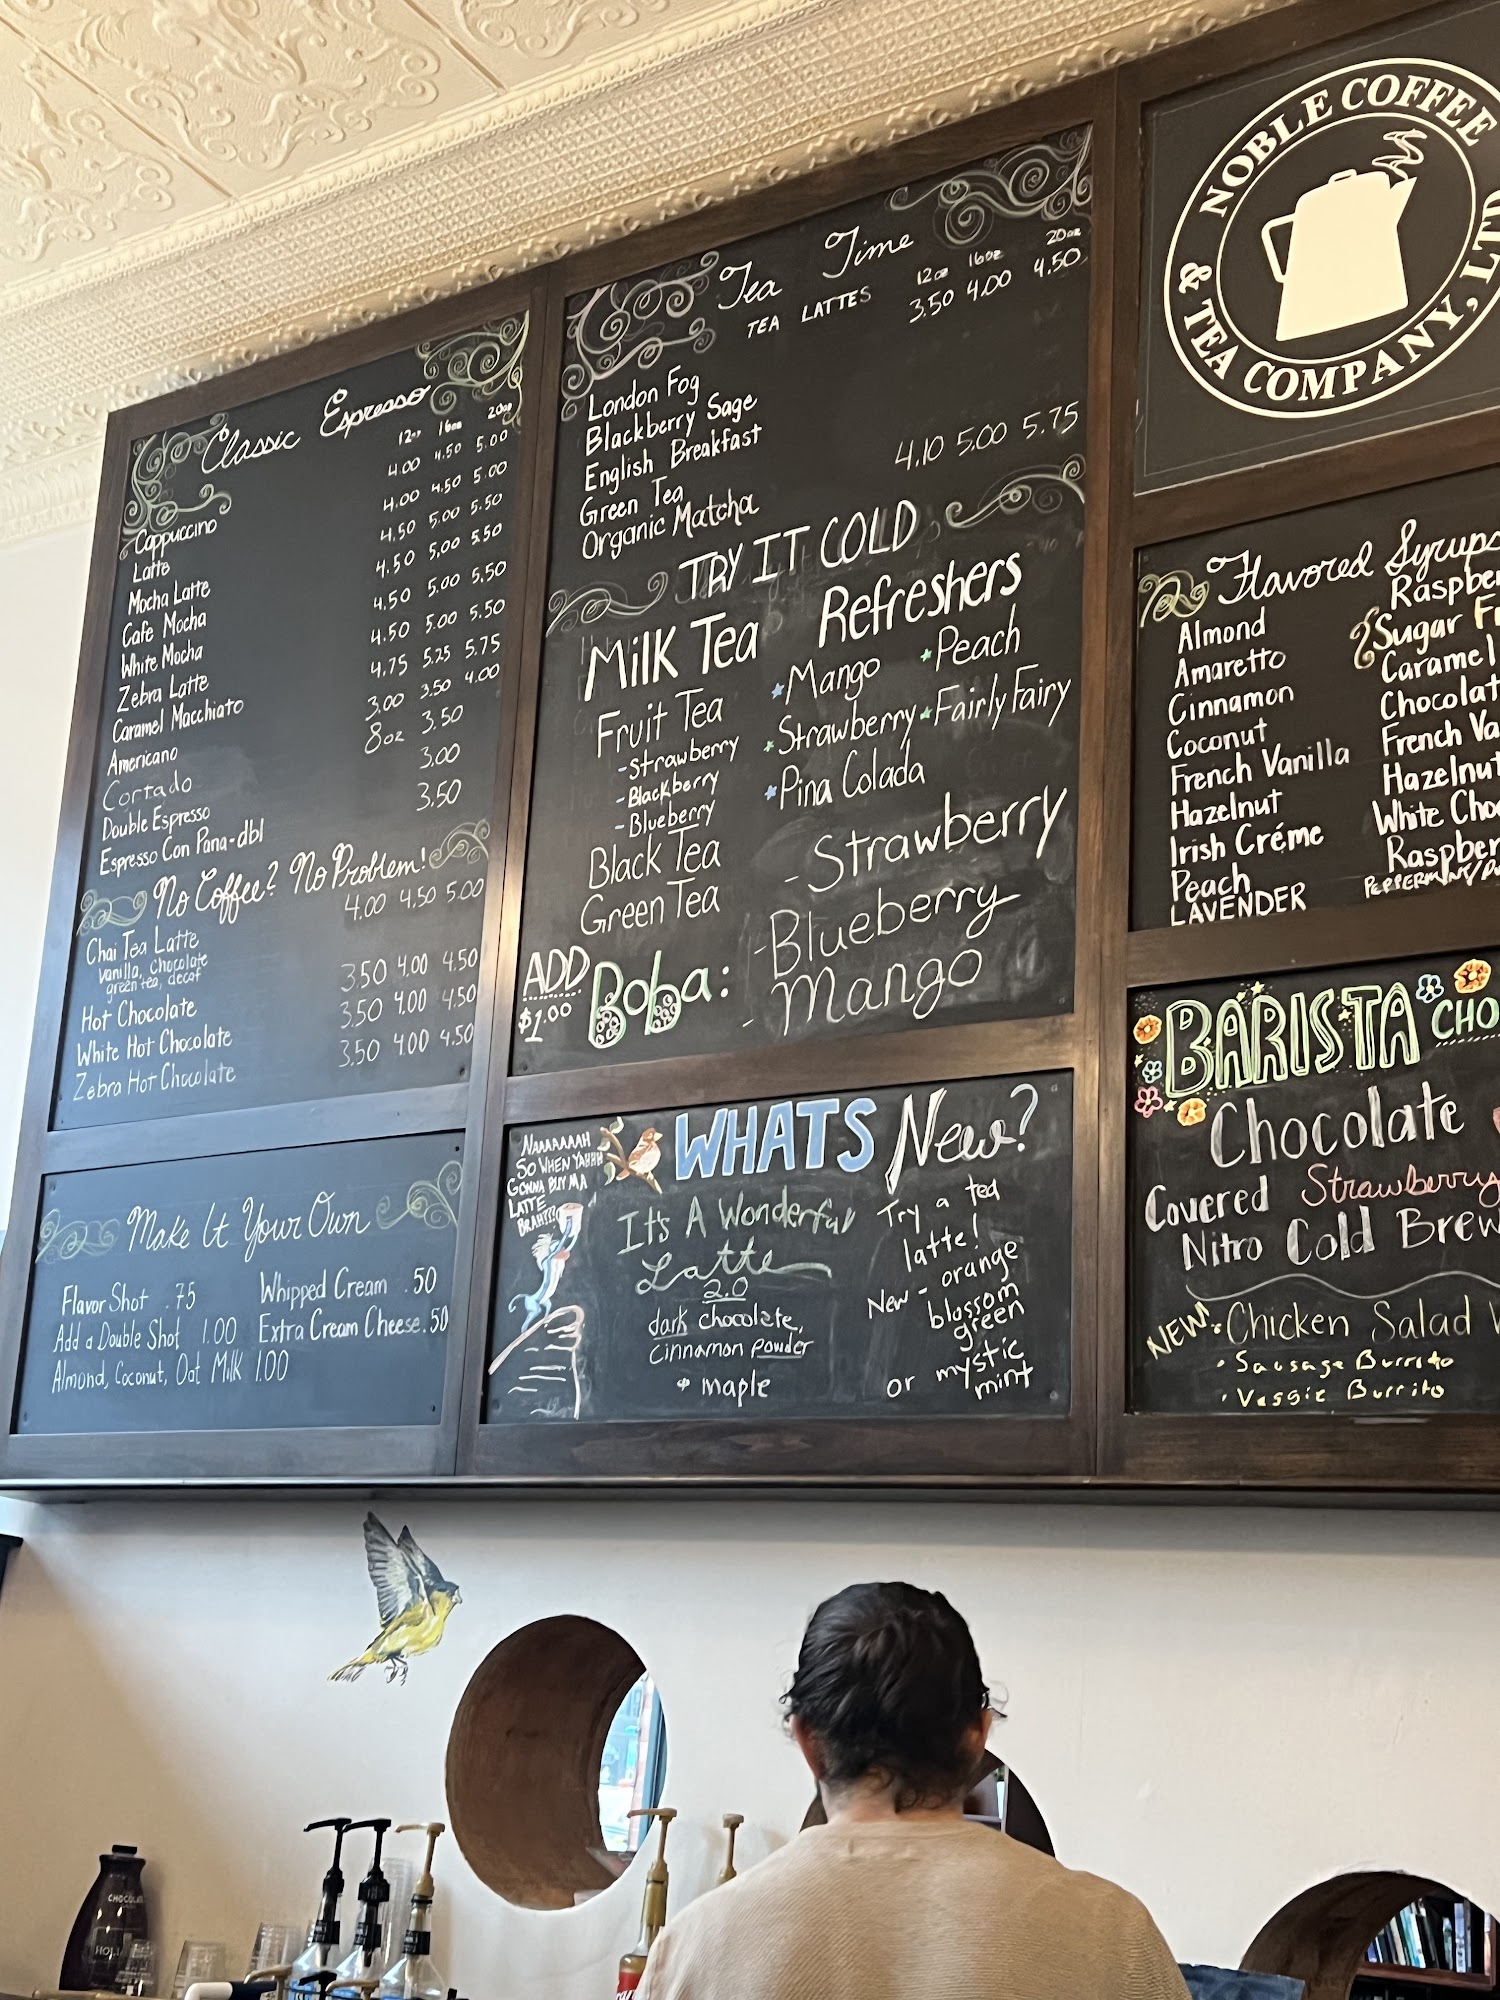 Classic Espresso
12oz 16oz 20oz
Cappuccino 4.00 4.50 5.00
Latte 4.00 4.50 5.00
Mocha Latte 4.50 5.00 5.50
Cafe Mocha 4.50 5.00 5.50
White Mocha 4.50 5.00 5.50
Zebra Latte 4.50 5.00 5.50
Caramel Macchiato 4.75 5.25 5.75
Americano 3.00 3.50 4.00
Cortado 8oz 3.50
Double Espresso 3.00
Espresso Con Pana-dbl 3.50
No Coffee? No Problem!
Chai Tea Latte 4.00 4.50 5.00
vanilla, chocolate
green tea, decaf
Hot Chocolate 3.50 4.00 4.50
White Hot Chocolate 3.50 4.00 4.50
Zebra Hot Chocolate 3.50 4.00 4.50
Make It Your Own
Flavor Shot .75 Whipped Cream .50
Add a Double Shot 1.00 Extra Cream Cheese .50
Almond, Coconut, Oat Milk 1.00
Tea Time
12oz 16oz 20oz
TEA LATTES 3.50 4.00 4.50
London Fog
Blackberry Sage
English Breakfast
Green Tea
Organic Matcha 4.10 5.00 5.75
TRY IT COLD
Milk Tea
Fruit Tea
-strawberry
-Blackberry
-Blueberry
Black Tea
Green Tea
Refreshers
Mango Peach
Strawberry Fairly Fairy
Pina Colada
ADD
$1.00
Boba:
- Strawberry
- Blueberry
- Mango
WHATS New?
NAAAAAAH
SO WHEN YAHHH
GONNA BUY MA
LATTE
BRAH!!!
It's A Wonderful
Latte
2.0
dark chocolate,
cinnamon powder
+ maple
Try a tea
latte!
New - orange
blossom
green
or mystic
mint
NOBLE COFFEE
& TEA COMPANY, LTD
Flavored Syrups
Almond
Amaretto
Cinnamon
Coconut
French Vanilla
Hazelnut
Irish Créme
Peach
LAVENDER
Sugar
Caramel
Hazelnut
White
BARISTA
Chocolate
Covered Strawberry
Nitro Cold Brew
NEW:
Chicken Salad
• Sausage Burrito
• Veggie Burrito